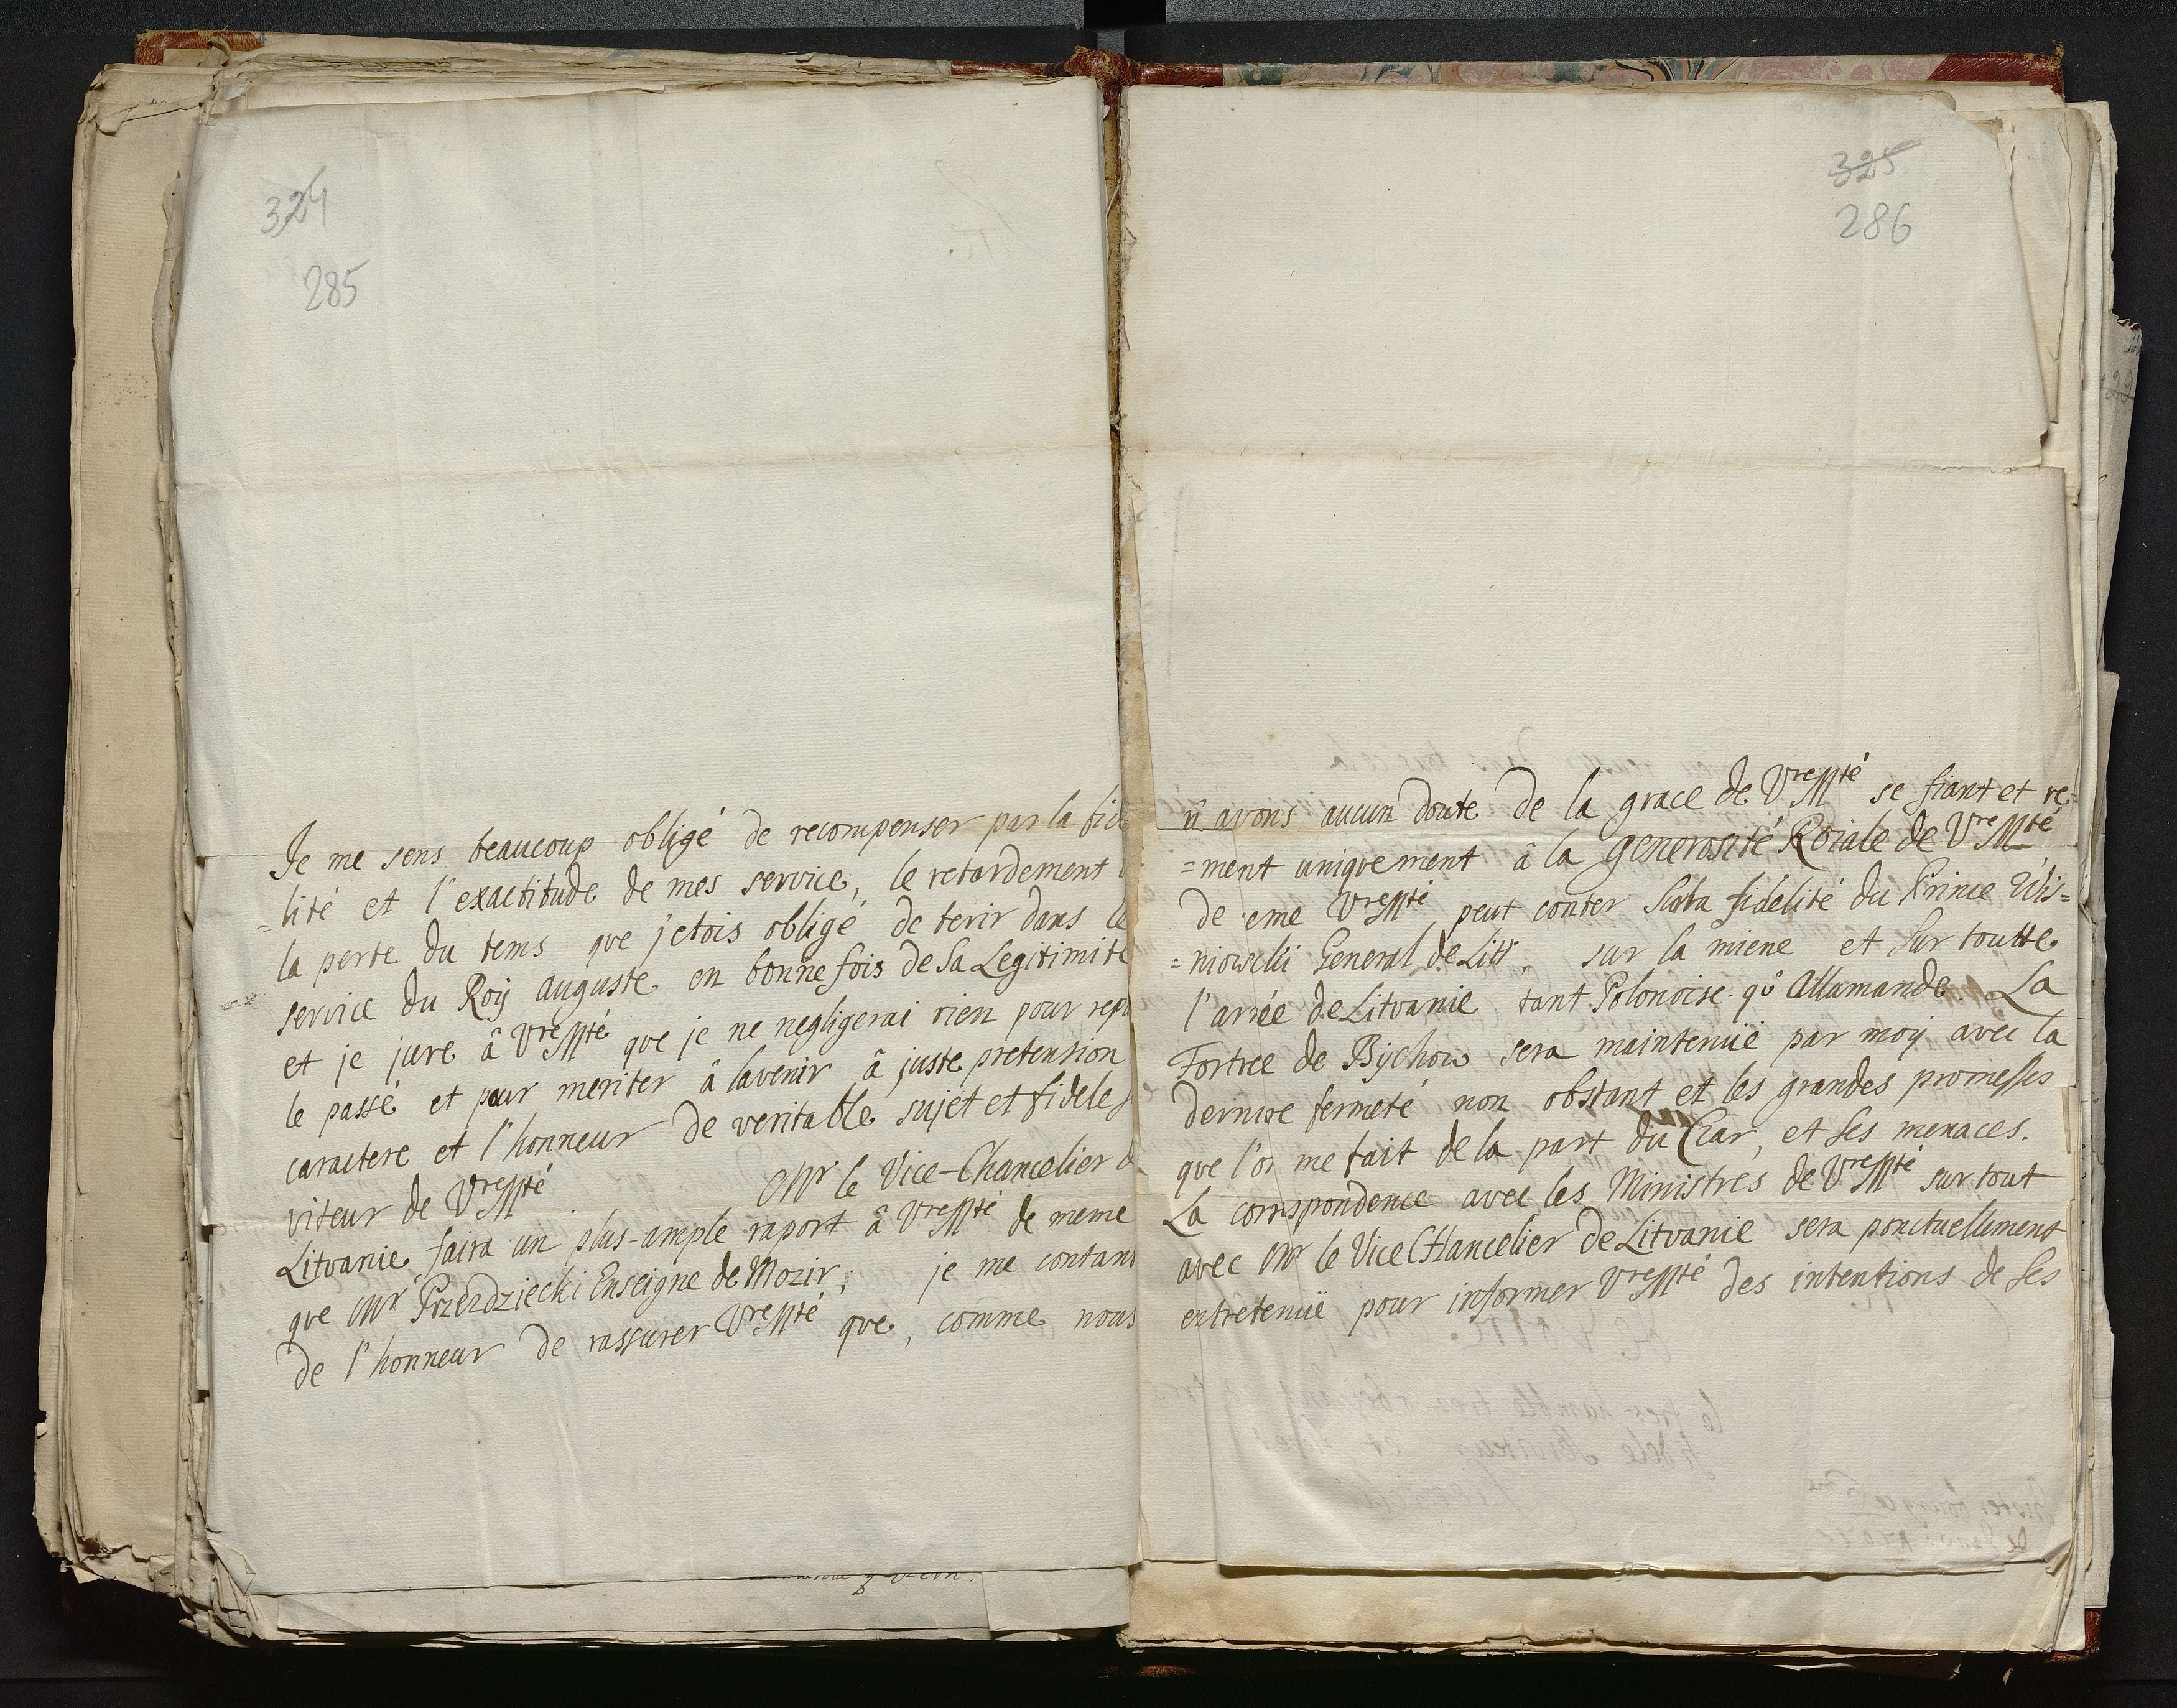 324
285
Je me sens beaucoup obligé de recompenser par la fid
=lité et l'exactitude de mes service, le retardement
la perte du tems que j'etois obligé de terir dans le
service du Roij auguste en bonne fois de Sa Legitimité
et je jure â Vre Mté que je ne negligerai rien pour rep
le passé et pour meriter â lavenir â juste pretension
caractere et l'honneur de veritable sujet et fidele
viteur de Vre Mté Mr le Vice-Chancelier d
Litvanie faira un plus-ample raport â Vre Mté de meme
que Mr Przezdziecki Enseigne de Mozir; je me contant
de l'honneur de rassurer Vre Mté que, comme nous
325
286
n'avons aucun doute de la grace de Vre Mté se fiant et re=
=ment uniquement â la generosité Roiale de Vre Mté
de eme Vre Mté peut conter Sula fidelité du Prince Wis=
=niowelki General de Litt, sur la miene et Sur toutte
l'arée de Litvanie tant Polonoise qu' Allamande La
Fortree de Bijchow sera maintenüe par moij avec la
derniere fermeté non obstant et les grandes promesses
que l'on me fait de la part du Czar, et Ses menaces.
La correspondence avec les Ministres de Vre Mté sur tout
avec Mr le Vice CHancelier de Litvanie sera ponctuellement
entretenüe pour informer Vre Mté des intentions de Ses